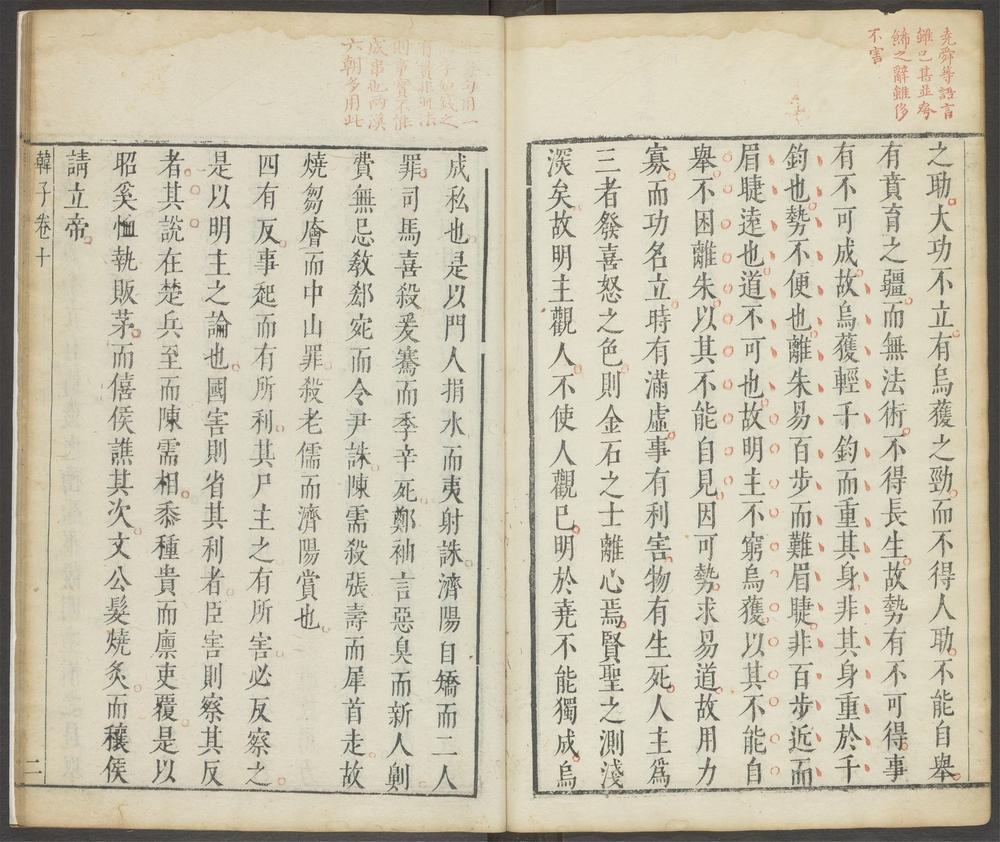 堯舜等語言
雖
之辭雖侈
不害
之助大功不立有烏獲之勁而不得人助不能自舉
有賁育之彊而無法術不得長生故勢有不可得事
有不可成故烏獲輕千鈞而重其身非其身重於千
鈞也勢不便也離朱易百步而難眉睫非百步近而
眉睫遠也道不可也故明主不窮烏獲以其不能自
舉不困離朱以其不能自見因可勢求易道故用力
寡而功名立時有滿虛事有利害物有生死人主為
三者發喜怒之色則金石之士離心焉賢聖之測淺
深矣故明主觀人不使人觀已明於堯不能獨成烏
用一
之
法
則事實不
成串也兩漢
六朝多用此
成私也是以門人捐水而夷射誅濟陽自矯而二人
罪司馬喜殺爰騫而季辛死鄭袖言惡臭而新人劓
費無忌教郄宛而令尹誅陳需殺張壽而犀首走故
燒芻廥而中山罪殺老儒而濟陽賞也
四有反事起而有所利其尸主之有所害必反察之
是以明主之論也國害則省其利者臣害則察其反
者其說在楚兵至而陳需相黍種貴而廩吏覆是以
昭奚恤執販茅而僖侯譙其次文公髮燒炙而穰侯
請立帝
韓子卷十
二